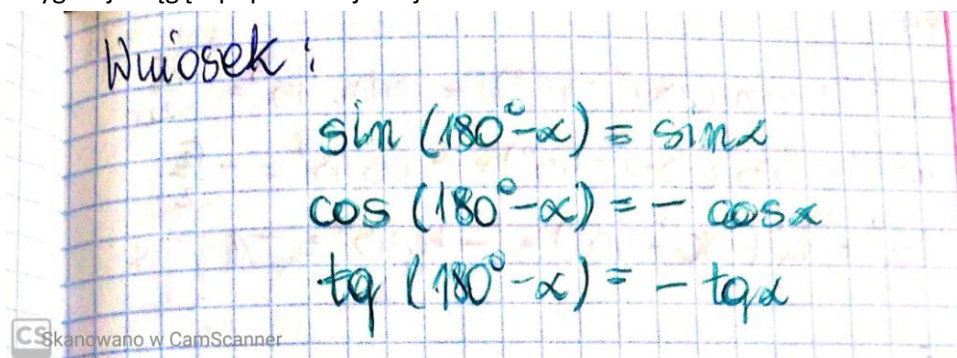 Wniosek:
sin (180°-α) = sinα
cos (180°-α) = - cosα
tg (180°-α) = - tgα
CS Skanowano w CamScanner